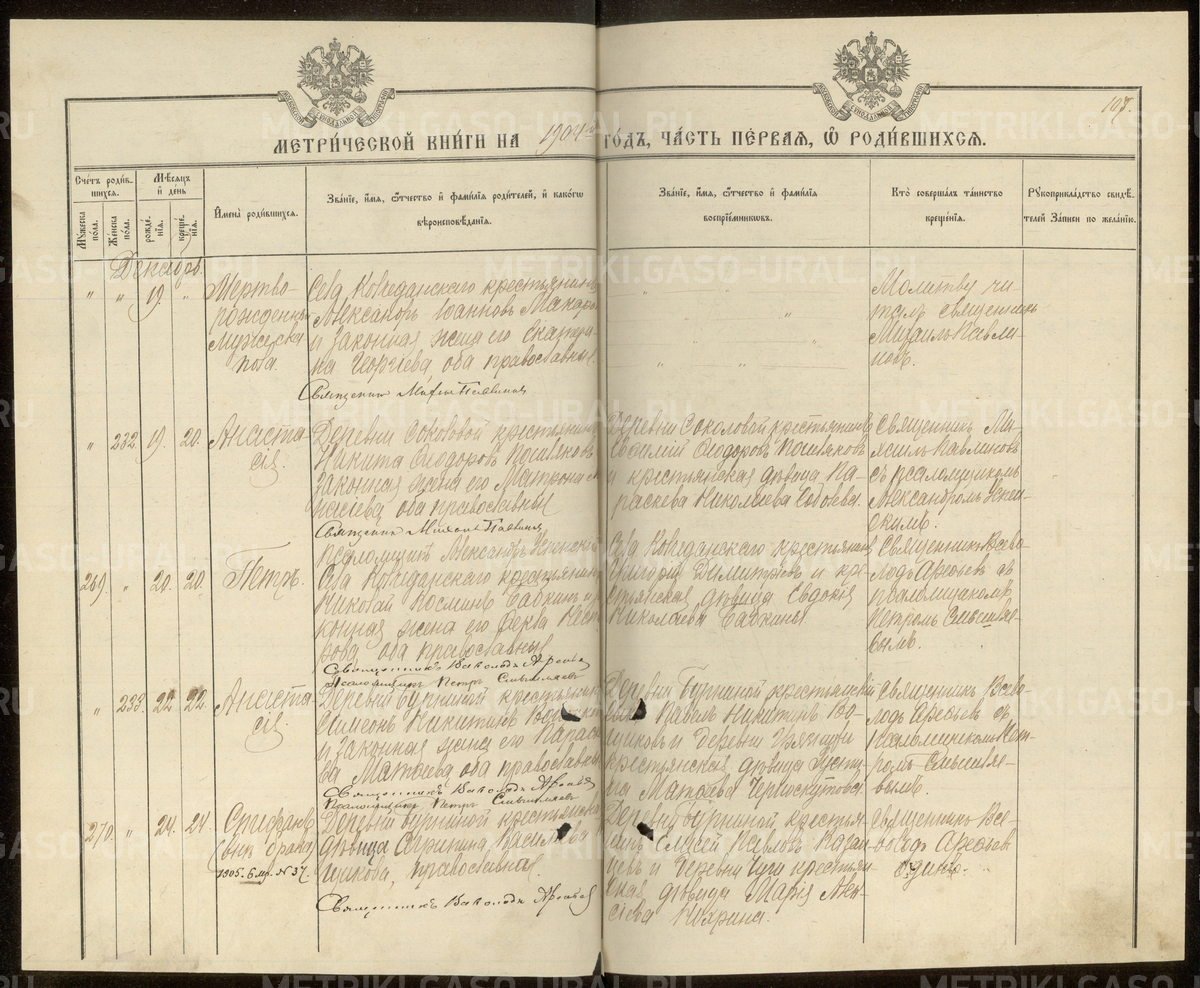 107.
МЕТРИ́ЧЕСКОЙ КНИ́ГИ НА 1904 й ГО́ДЪ, ЧА́СТЬ ПЕ́РВАЯ, Ѿ РОДИ́ВШИХСЯ.
Сче́тъ роди́в-
шихся.
Му́жеска по́ла.
Же́нска по́ла.
Мѣ́сяцъ
и҆ день
рожде́-
нія.
креще́-
нія.
И҆мена̀ роди́вшихся.
Зва́ніе, и҆́мя, ѻ҆́тчество и҆ фами́лія роди́телей, и҆ како́гѡ
вѣроисповѣ́данія.
Зва́ніе, и҆́мя, ѻ҆́тчество и҆ фами́лія
воспріе́мникѡвъ.
Кто̀ соверша́лъ та́инство
креще́нія.
Рукоприкла́дство свидѣ́-
телей за́писи по жела́нію.
Декабрь.
" " 19. "
Мертво-
рожденный
мужеска
пола.
Села Колчеданскаго крестьянинъ
Александръ Іоанновъ Макаров
и законная жена его Екатери-
на Георгіева оба православные.
Священникъ Михаилъ Павлинов
Молитву чи-
талъ священникъ
Михаилъ Павли-
новъ.
" 232. 19. 20.
Анаста-
сія.
Деревни Соколовой крестьянинъ
Никита Ѳеодоровъ
законная жена его Матрона
оба православные
Священникъ Михаилъ Павлинов
Псаломщикъ Александръ
Деревни Соколовой крестьянинъ
Василій Ѳеодоровъ
и крестьянская дѣвица Па-
раскева Николаева
Священникъ Ми-
хаилъ Павлиновъ
съ псаломщикомъ
Александромъ
269. " 20. 20.
Петръ.
Села Колчеданскаго крестьянинъ
Николай Косминъ Бабкинъ и за-
конная жена его Ѳекла
оба православные
Священникъ Всеволодъ Арефьевъ
Псаломщикъ Петръ Смышляевъ
Села Колчеданскаго крестьянинъ
Григорій Димитріевъ и кре-
стьянская дѣвица Евдокія
Николаева Бабкины
Священникъ Всево-
лодъ Арефьевъ съ
псаломщикомъ
Петромъ Смышляе-
вымъ.
" 233. 22. 22.
Анаста-
сія.
Деревни Бурниной крестьянинъ
Симеонъ Никитинъ
и законная жена его Параске-
ва Матѳеева, оба православные
Священникъ Всеволодъ Арефьевъ
Псаломщикъ Петръ Смышляевъ
Деревни Бурниной крестьянскій
Павелъ Никитинъ
и деревни
крестьянская дѣвица Усти-
на Матѳеева Черноскутова
Священникъ Всево-
лодъ Арефьевъ съ
псаломщикомъ Пет-
ромъ Смышляе-
вымъ.
270. " 24. 24.
Стефанъ
(внѣ брака)
1905. 6 мр. № 37.
Деревни Бурниной крестьянская
дѣвица Васильева
православная.
Священникъ Всеволодъ Арефьевъ
Деревни Бурниной крестья-
нинъ Павловъ
и деревни крестьян-
ская дѣвица Марія Алек-
сіева
Священникъ Все-
володъ Арефьевъ
одинъ.
METRIKI.GASO-URAL.RU